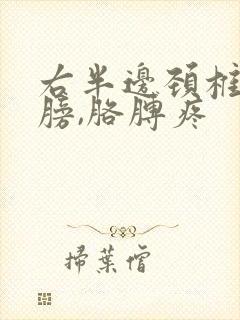 右半邊頚椎
膀,胳膊疼
掃葉僧